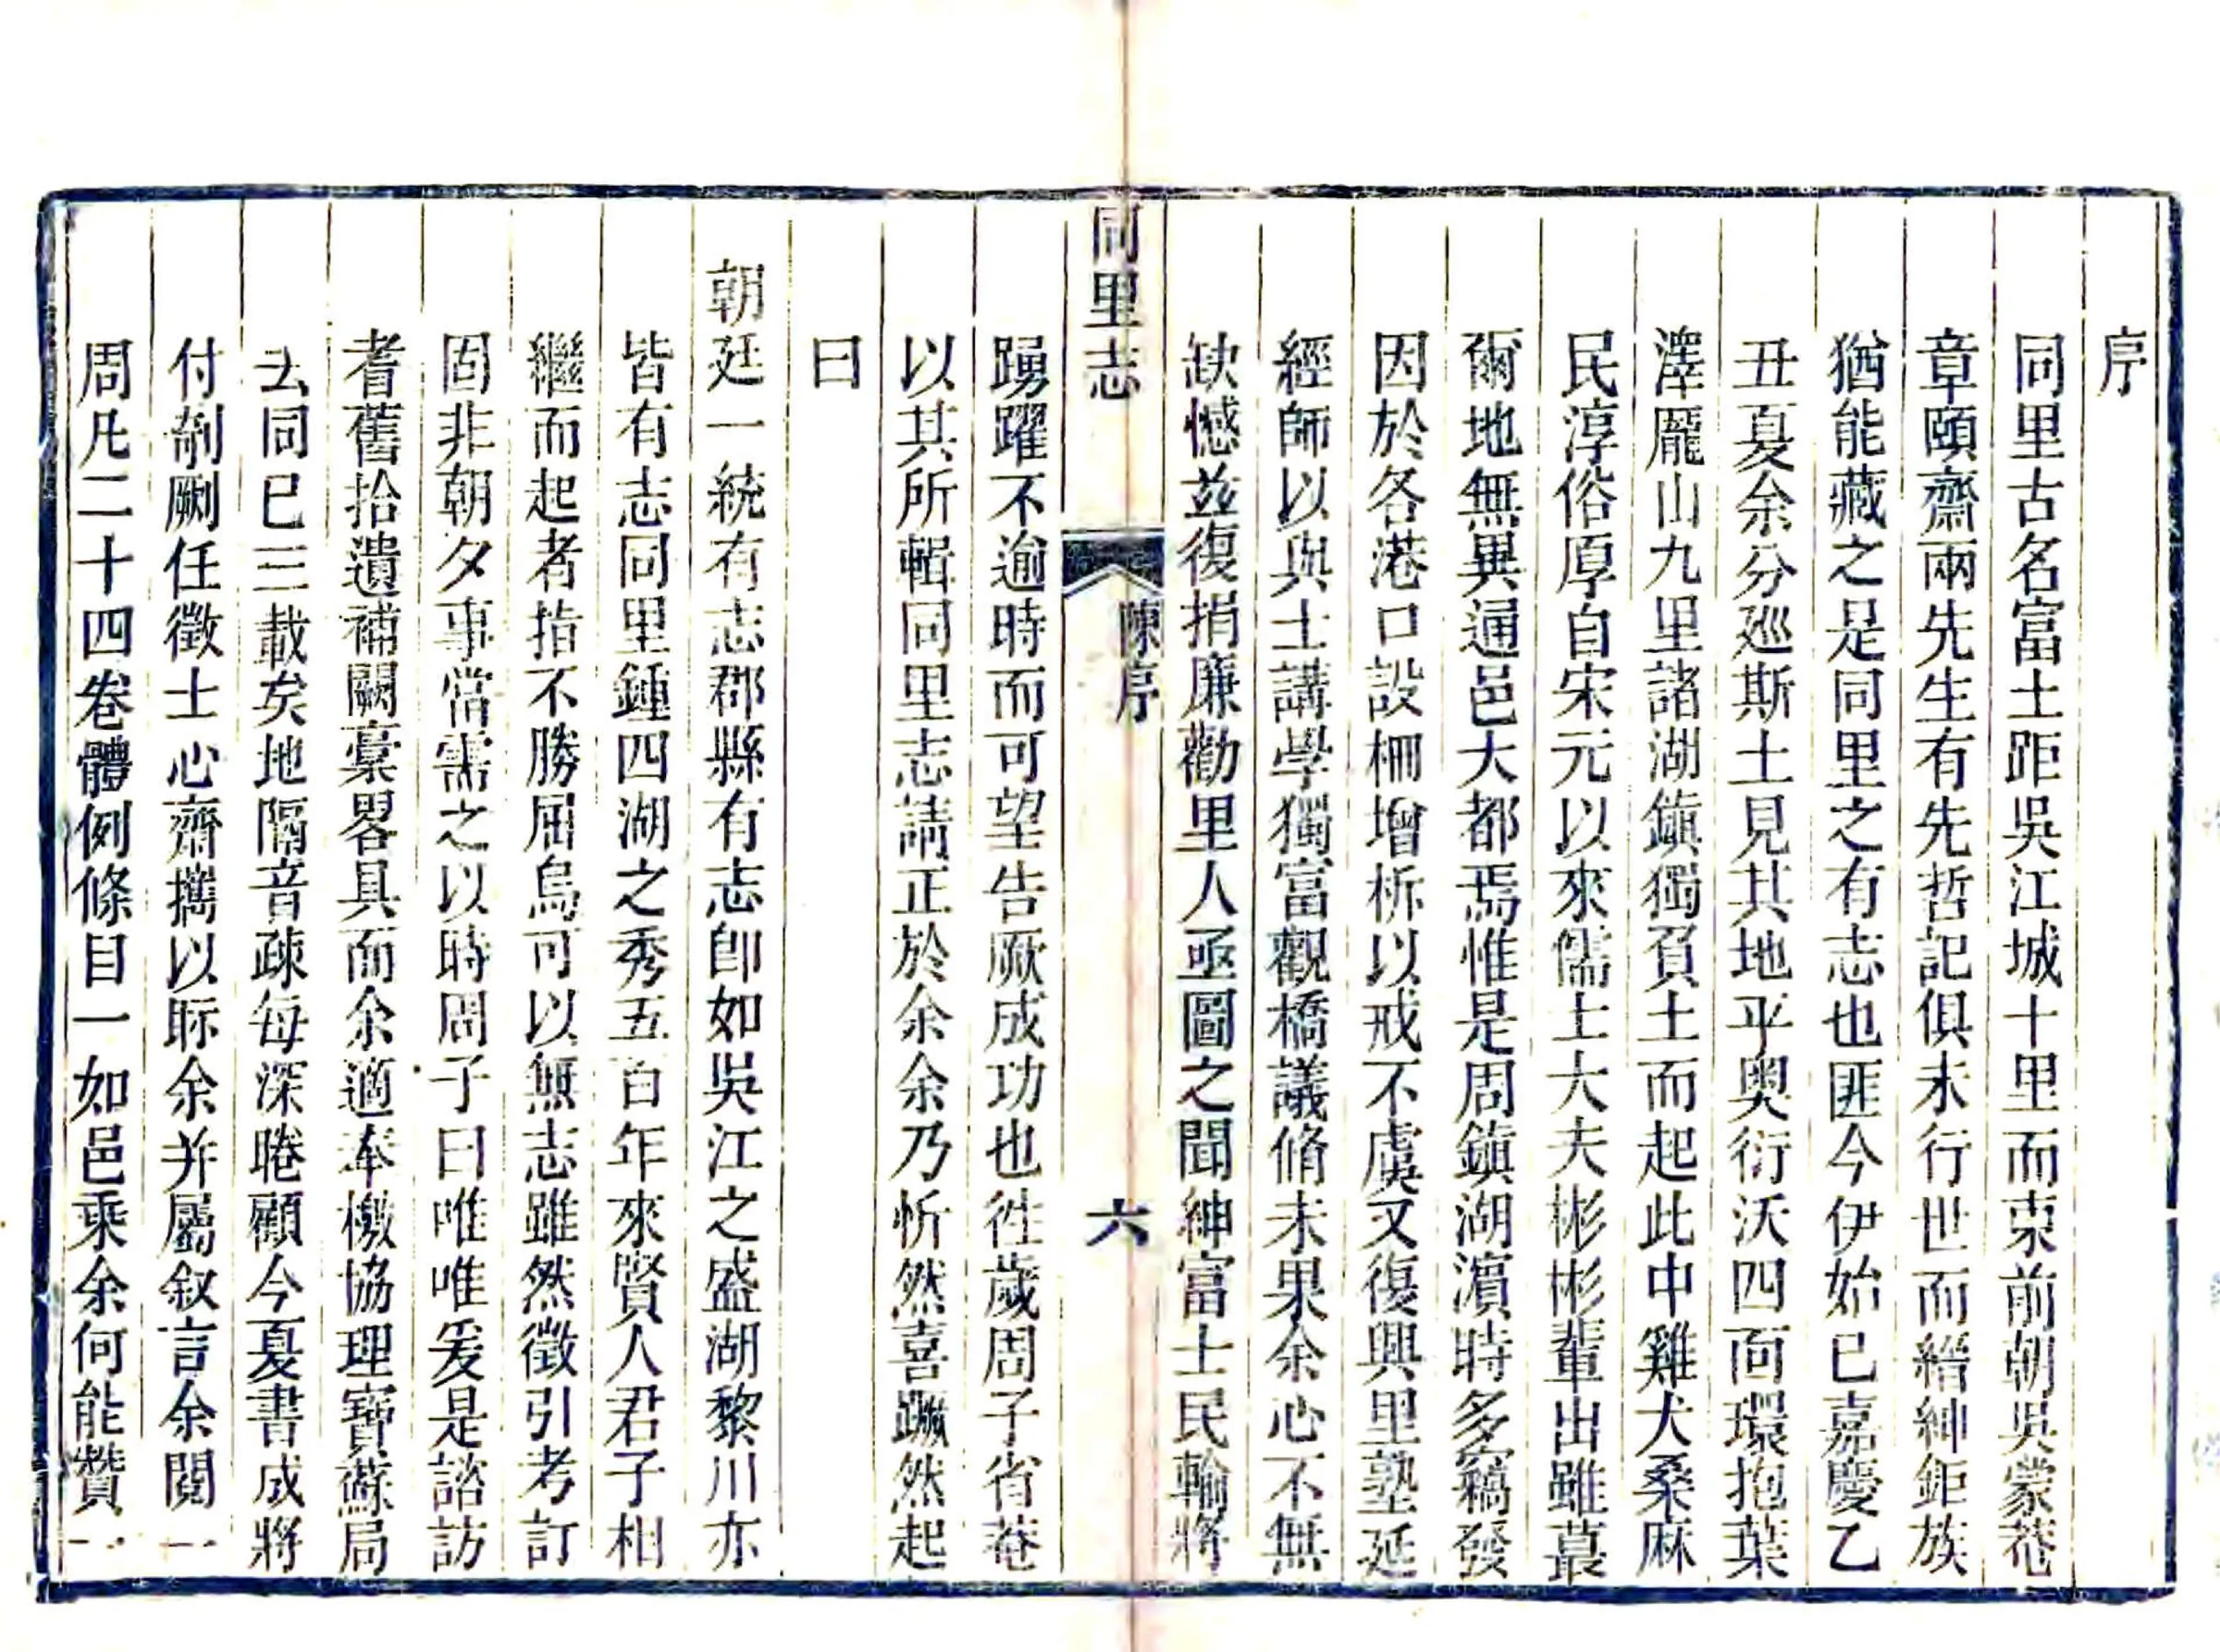 序
同里古名富土距吳江城十里而東前朝吳蒙菴
章頤齋兩先生有先哲記俱未行世而縉紳鉅族
猶能藏之是同里之有志也匪今伊始已嘉慶乙
丑夏余分廵斯土見其地平奧衍沃四面環抱葉
澤龎山九里諸湖鎮獨負土而起此中雞犬桑麻
民淳俗厚自宋元以來儒士大夫彬彬輩出雖蕞
爾地無異通邑大都焉惟是周鎮湖濵時多竊發
因於各港口設柵增柝以戒不虞又復興里塾延
經師以與士講學獨富觀橋議脩未果余心不無
缺憾茲復捐廉勸里人亟圖之聞紳富士民輸將
同里志
陳序
六
踴躍不逾時而可望告厥成功也徃歲周子省菴
以其所輯同里志請正於余余乃忻然喜蹶然起
曰
朝廷一統有志郡縣有志卽如吳江之盛湖黎川亦
皆有志同里鍾四湖之秀五百年來賢人君子相
繼而起者指不勝屈烏可以無志雖然徵引考訂
固非朝夕事當需之以時周子曰唯唯爰是諮訪
耆舊拾遺補闕稾畧具而余適奉檄協理寶蘇局
去同已三載矣地隔音疎每深睠顧今夏書成將
付剞劂任徵士心齋攜以眎余并屬叙言余閱一
周凡二十四卷體例條目一如邑乘余何能贊一